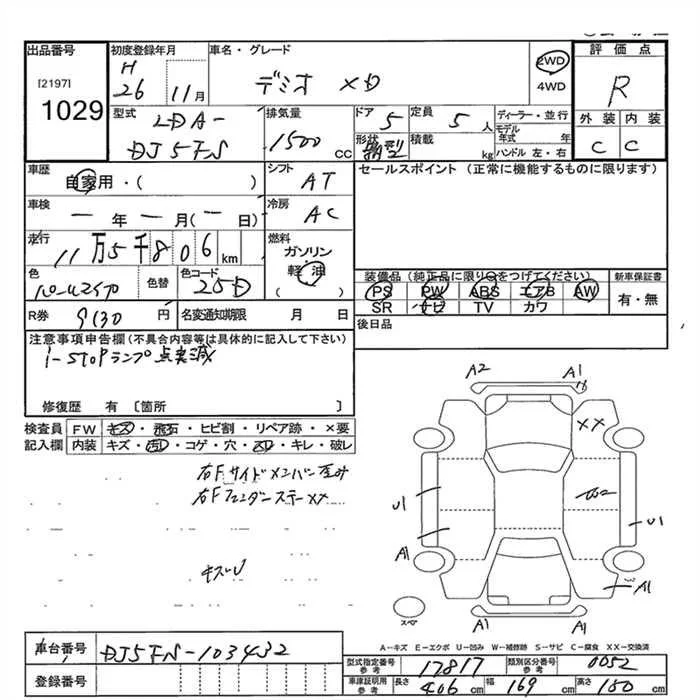 出品番号 初度登録年月 車名・グレード 評価点
[2197] H 26 11月 デミオ XD 2WD 4WD R
1029
型式 LDA- DJ5FS 排気量 1500 cc ドア 5 定員 5 人 ディーラー・並行 外装 内装
形状 箱型 積載 kg モデル年式 年 ハンドル 左・右 C C
車歴 自家用・( ) シフト AT セールスポイント (正常に機能するものに限ります)
車検 ー 年 ー 月(ー日) 冷房 AC
走行 11万5千806 km 燃料 ガソリン 軽油
色 パールホワイト 色替 色コード 25D 装備品(純正品に限り○をつけてください) 新車保証書
PS PW ABS エアB AW 有・無
SR ナビ TV カワ
R券 9130 円 名変通知期限 月 日 後日品
注意事項申告欄(不具合内容等は具体的に記入して下さい)
i-STOPランプ点滅
修復歴 有 [箇所 ]
検査員 FW キズ・飛石・ヒビ割・リペア跡・×要
記入欄 内装 キズ・汚れ・コゲ・穴・スレ・キレ・破レ
右Fサイドメンバー歪み
右Fフェンダーステー××
キズU
A2 A1
××
U1 U1
A1
A1
スペア
A1 A1
A-キズ E-エクボ U-凹み W-補修跡 S-サビ C-腐食 XX-交換済
車台番号 DJ5FS-103432
登録番号
型式指定番号 参考 17817 類別区分番号 参考 0052
車庫証明用 参考 長さ 406 cm 幅 169 cm 高さ 150 cm